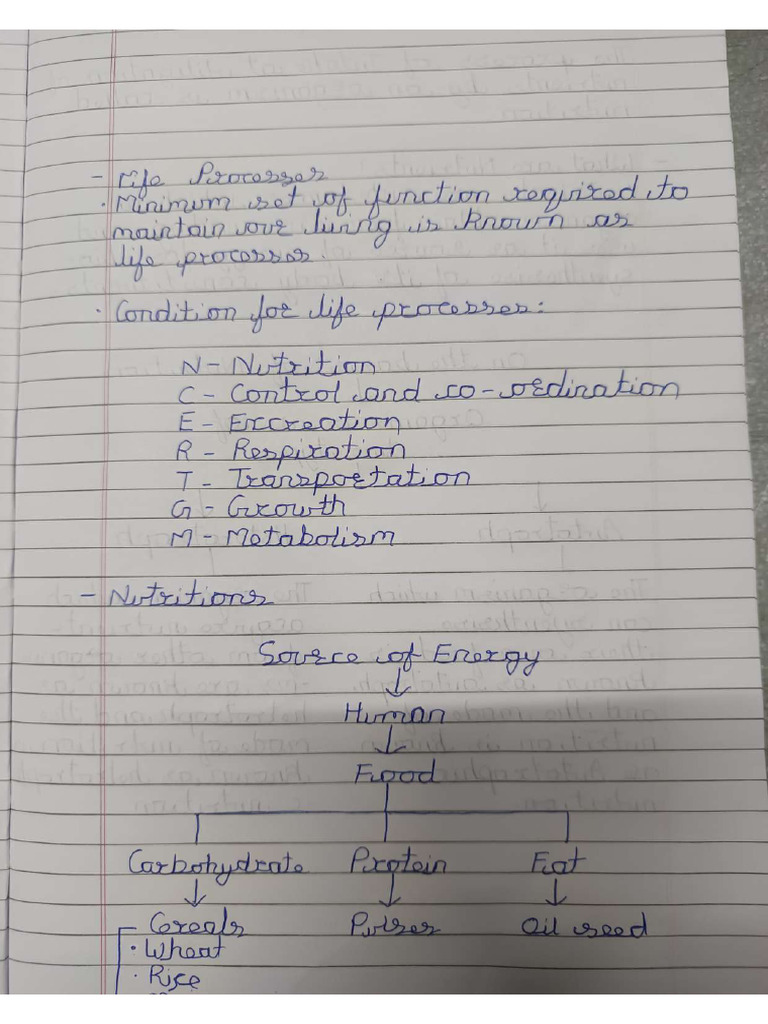 - Life Processes
· Minimum set of function required to
maintain our living is known as
life processes.
· Condition for life processes:
N - Nutrition
C - Control and co-ordination
E - Excreation
R - Respiration
T - Transportation
G - Growth
M - Metabolism
- Nutritions
Source of Energy
↓
Human
↓
Food
Carbohydrate Protein Fat
↓ ↓ ↓
Cereals Pulses Oil seed
· Wheat
· Rice